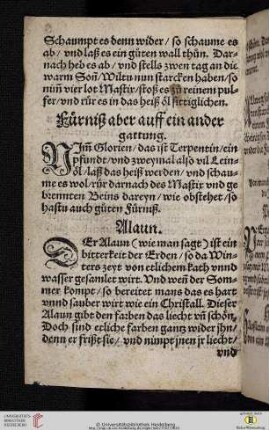 Schaumpt es denn wider / so schaume es
ab / vnd laß es ein gůten wall thůn. Dar-
nach heb es ab / vnd stells zwen tag an die
warm Son / Wiltu nun starcken haben / so
nim̃ vier lot Mastix / stoß es zů reinem pul-
fer / vnd rür es in das heiß öl sittiglichen.
Fürniß aber auff ein ander
gattung.
NIm̃ Glorien / das ist Terpentin / ein
pfundt / vnd zweymal also vil Lein
öl / laß das heiß werden / vnd schau-
me es wol / rür darnach des Mastix vnd ge
brennten Beins dareyn / wie obstehet / so
hastu auch gůten Fürniß.
Alaun.
DEr Alaun (wie man sagt) ist ein
bitterkeit der Erden / so da Win-
ters zeyt von etlichem kath vnnd
wasser gesamlet wirt. Vnd weñ der Som-
mer kompt / so bereitet mans das es hart
vnnd sauber wirt wie ein Christall. Dieser
Alaun gibt den farben das liecht vñ schön,
Doch sind etliche farben gantz wider jhn /
denn er frißt sie / vnd nimpt jnen jr liecht /
vnd
© Universitätsbibliothek Heidelberg